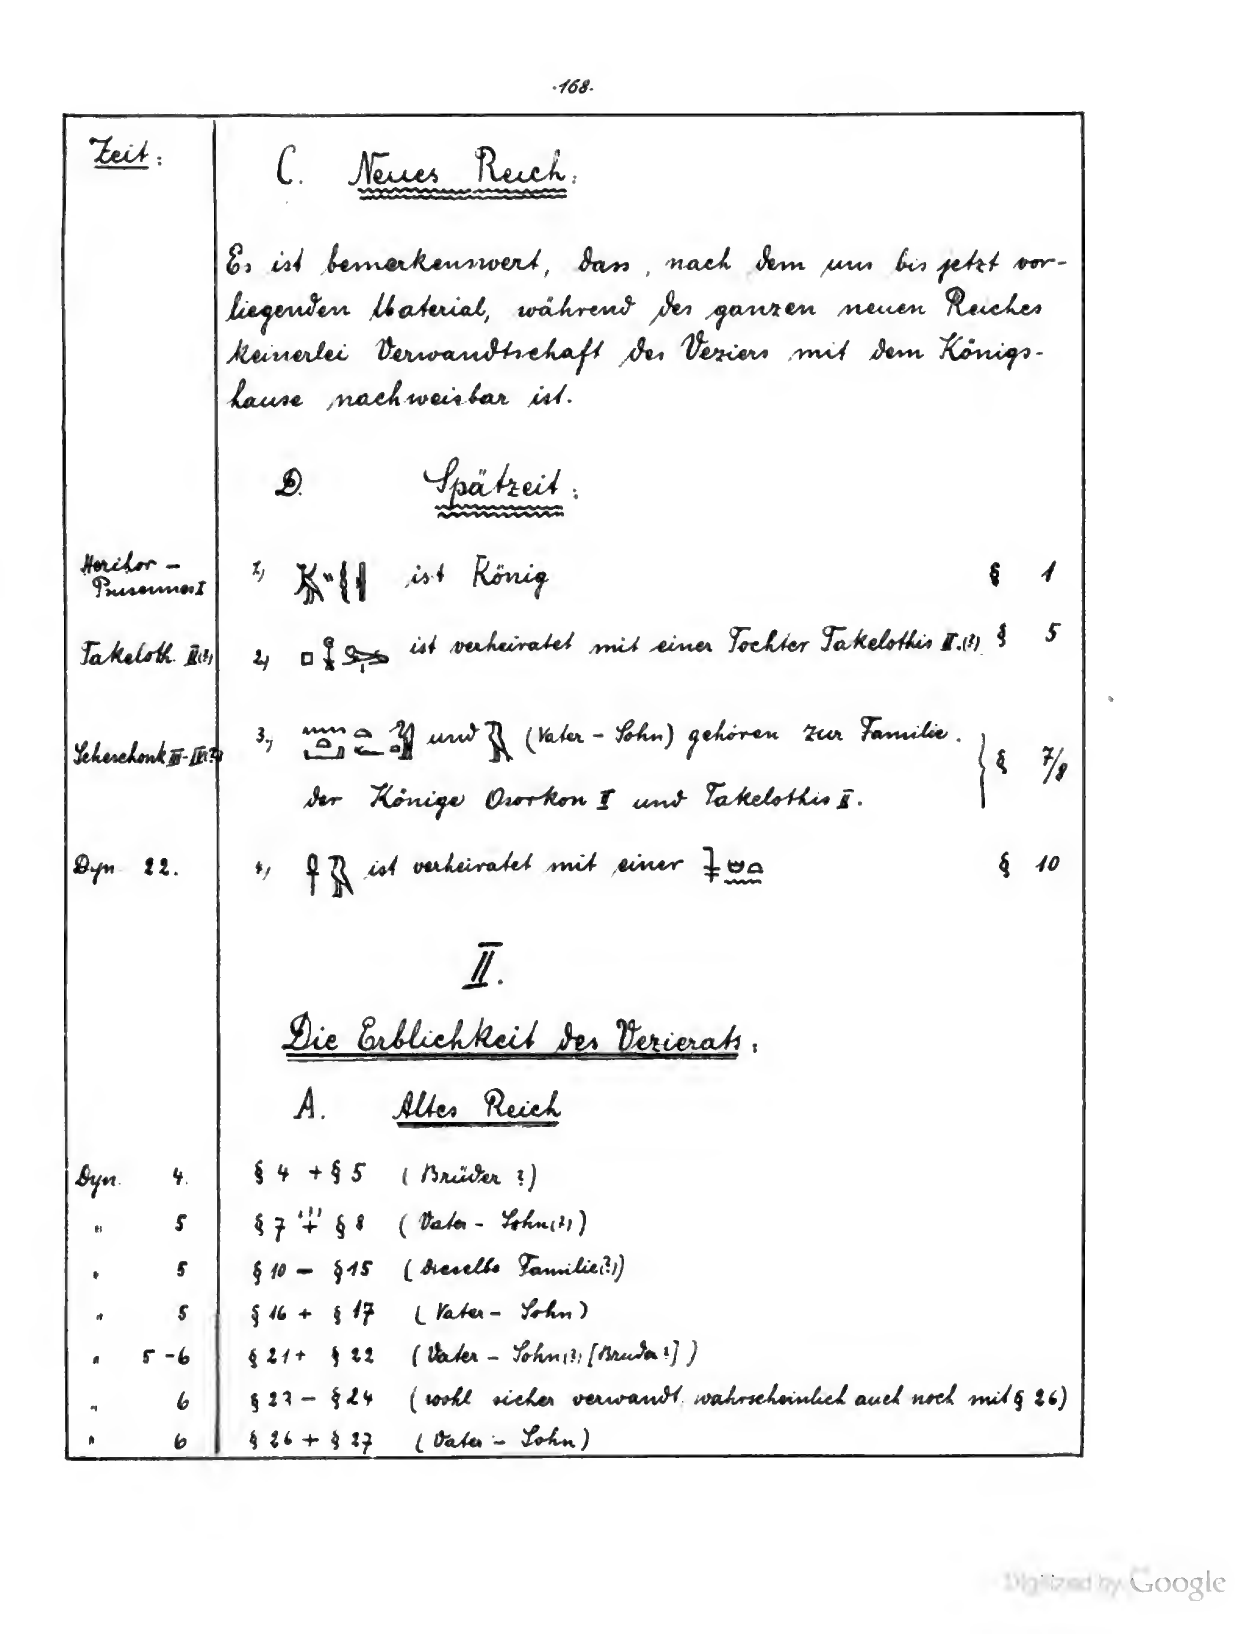 ·168·
Zeit:
C. Neues Reich:
Es ist bemerkenswert, dass, nach dem uns bis jetzt vor-
liegenden Material, während des ganzen neuen Reiches
keinerlei Verwandtschaft des Veziers mit dem Königs-
hause nachweisbar ist.
D. Spätzeit:
Herihor –
Psusennes I
1, ist König § 1
Takeloth. II(?) 2, ist verheiratet mit einer Tochter Takelothis II.(?) § 5
Scheschonk III-IV(?) 3., und (Vater – Sohn) gehören zur Familie.
der Könige Osorkon I und Takelothis II. § 7/8
Dyn 22. 4, ist verheiratet mit einer § 10
II.
Die Erblichkeit des Vezierats:
A. Altes Reich
Dyn. 4. § 4 + § 5 (Brüder ?)
" 5 § 7 + § 8 (Vater – Sohn(?))
" 5 § 10 – § 15 (dieselbe Familie(?))
" 5 § 16 + § 17 (Vater – Sohn)
" 5-6 § 21 + § 22 (Vater – Sohn(?) [Bruder?])
" 6 § 23 – § 24 (wohl sicher verwandt, wahrscheinlich auch noch mit § 26)
" 6 § 26 + § 27 (Vater – Sohn)
Digitized by Google